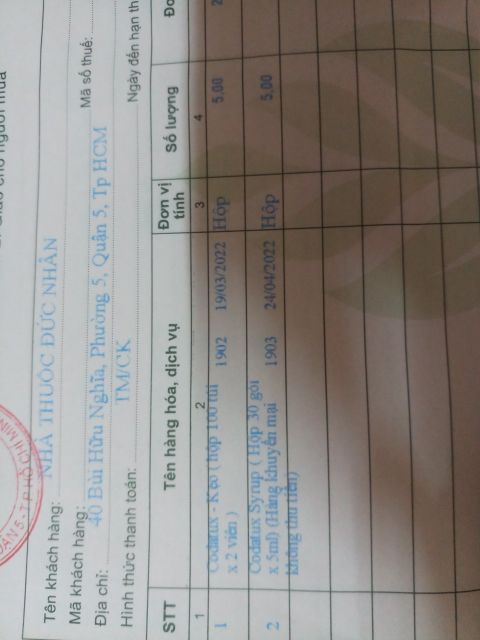 Giao cho người mua
QUẬN 5 - T.P HỒ CHÍ MINH
Tên khách hàng: NHÀ THUỐC ĐỨC NHÂN
Mã khách hàng: Mã số thuế:
Địa chỉ: 40 Bùi Hữu Nghĩa, Phường 5, Quận 5, Tp HCM
Hình thức thanh toán: TM/CK Ngày đến hạn th
STT Tên hàng hóa, dịch vụ Đơn vị tính Số lượng Đơ
1 2 3 4
1 Codatux - Kẹo ( hộp 100 túi 1902 19/03/2022 Hộp 5,00 2
x 2 viên )
Codatux Syrup ( Hộp 30 gói
2 x 5ml) (Hàng khuyến mại 1903 24/04/2022 Hộp 5,00
không thu tiền)